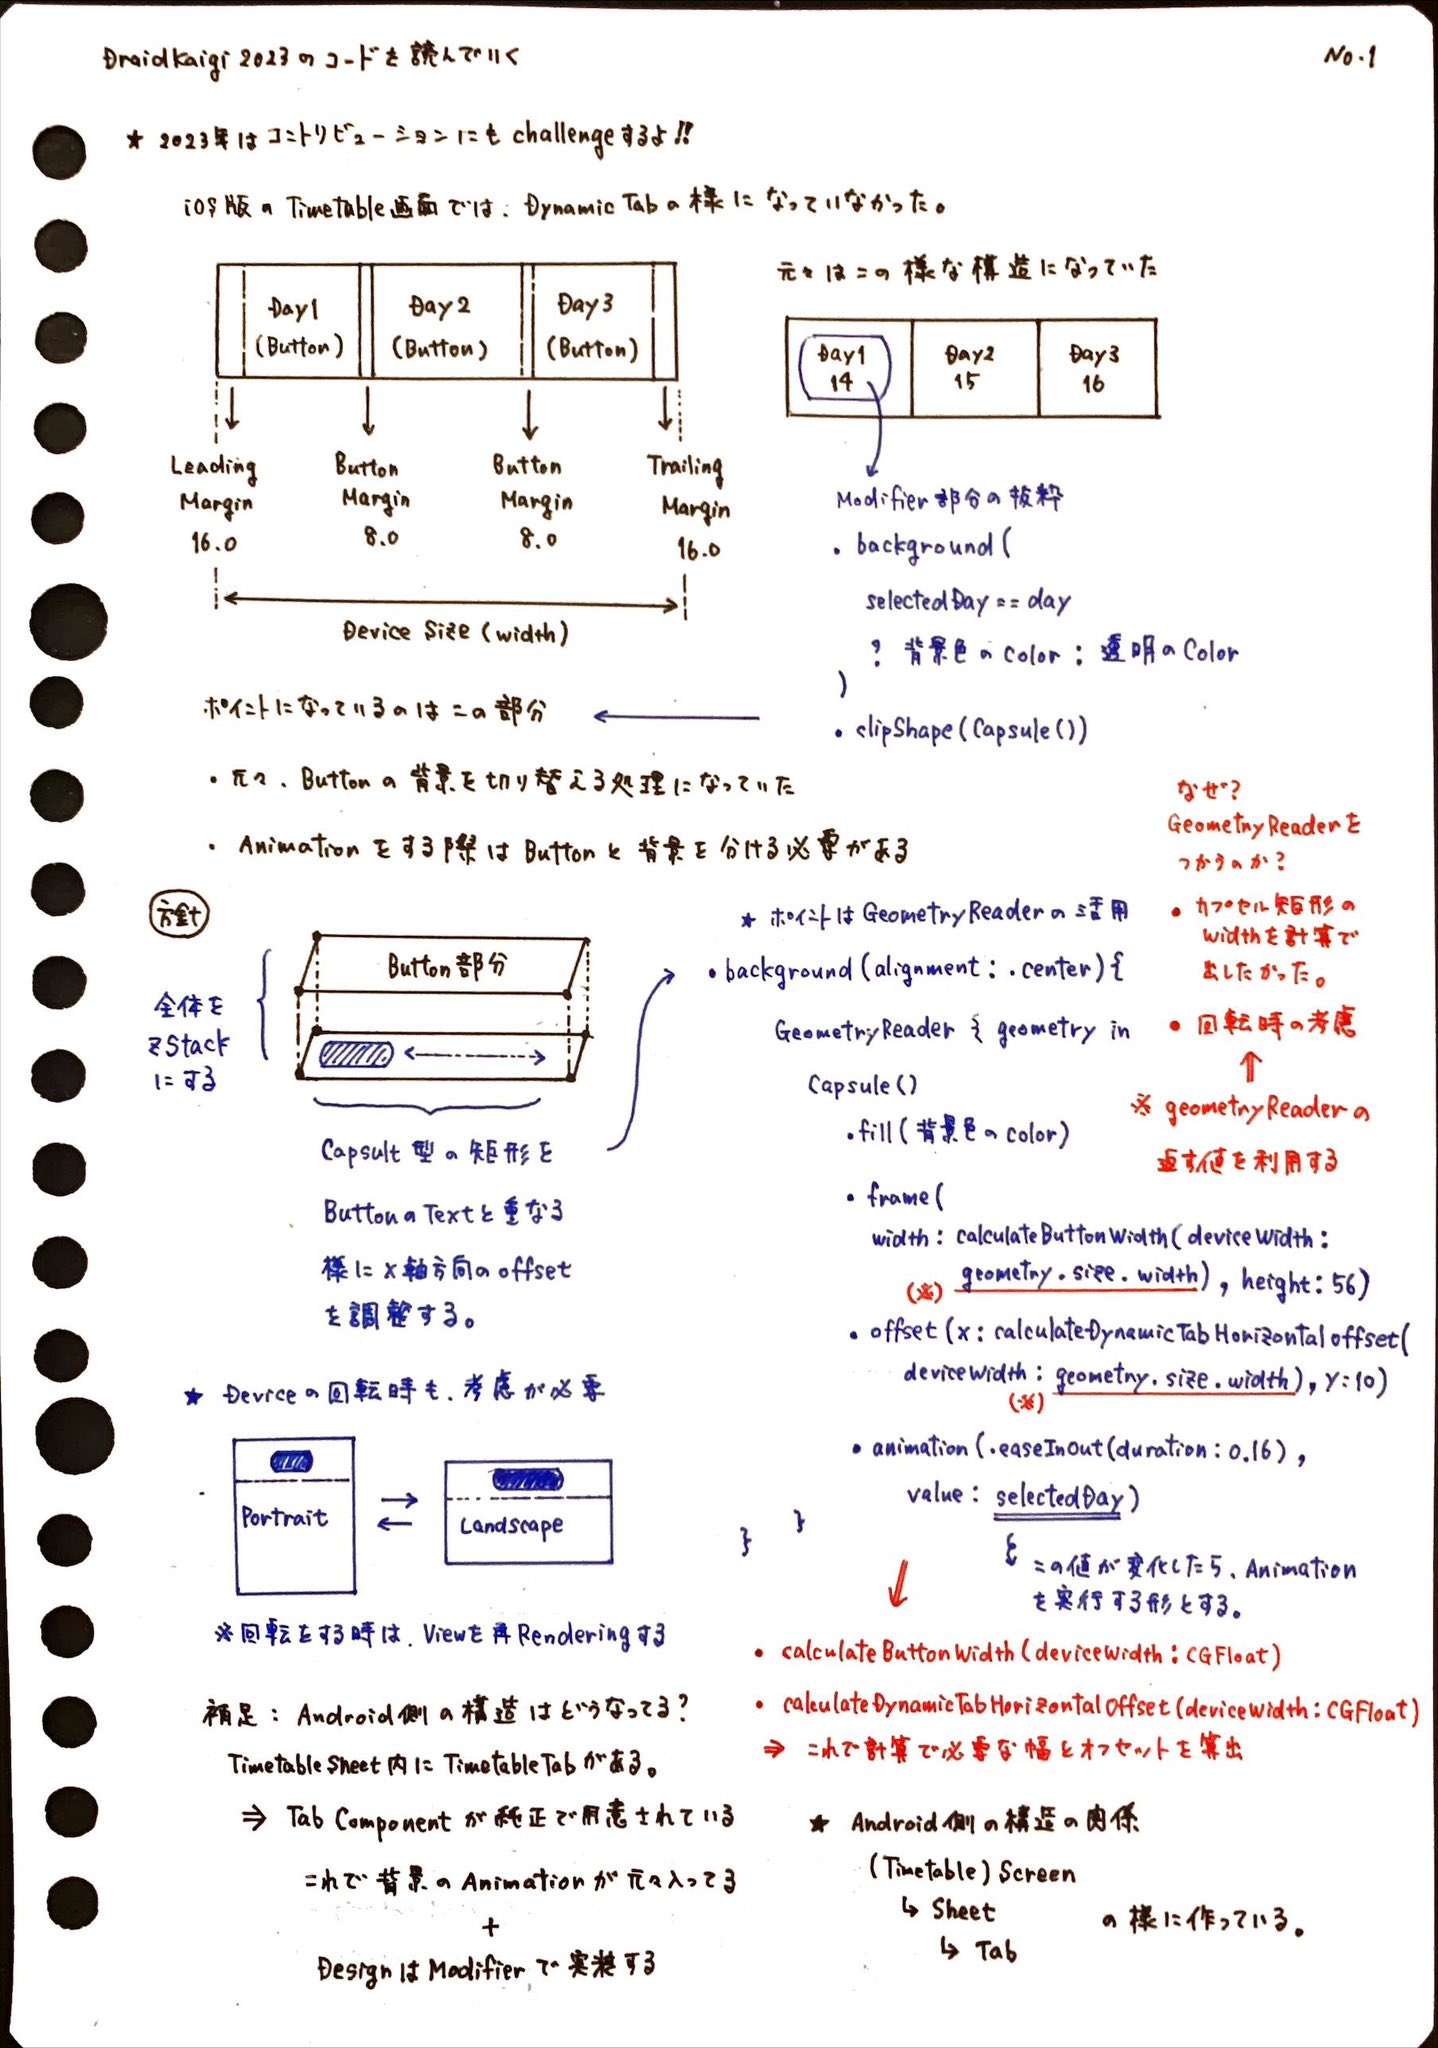 DroidKaigi 2023 の コードを 読んでいく
No.1
★ 2023年は コントリビューションにも challengeするよ!!
iOS版の Timetable画面では、Dynamic Tabの様に なっていなかった。
Day1
(Button)
Day2
(Button)
Day3
(Button)
Leading
Margin
16.0
Button
Margin
8.0
Button
Margin
8.0
Trailing
Margin
16.0
Device Size (width)
元々はこの様な構造になっていた
Day1
14
Day2
15
Day3
16
Modifier部分の抜粋
・ background(
selectedDay == day
? 背景色のColor : 透明のColor
)
・ clipShape(Capsule())
ポイントになっているのはこの部分
・ 元々、Buttonの背景を切り替える処理になっていた
・ Animationをする際は Buttonと背景を分ける必要がある
方針
全体を
ZStack
にする
Button部分
Capsult型の矩形を
ButtonのTextと重なる
様にx軸方向のoffset
を調整する。
★ ポイントはGeometryReaderの活用
・ background(alignment: .center){
GeometryReader { geometry in
Capsule()
.fill(背景色のcolor)
・ frame(
width: calculateButtonWidth(deviceWidth:
(※) geometry.size.width), height: 56)
・ offset(x: calculateDynamicTabHorizontaloffset(
deviceWidth: geometry.size.width), y:10)
(※)
・ animation(.easeInOut(duration: 0.16),
value: selectedDay)
}
}
この値が変化したら、Animation
を実行する形とする。
なぜ?
GeometryReaderを
つかうのか?
・ カプセル矩形の
widthを計算で
出したかった。
・ 回転時の考慮
↑
※ geometryReaderの
返す値を利用する
★ Deviceの回転時も、考慮が必要
Portrait
Landscape
※回転をする時は、Viewを再Renderingする
・ calculateButtonWidth(deviceWidth: CGFloat)
・ calculateDynamicTabHorizontalOffset(deviceWidth: CGFloat)
⇒ これで計算で必要な幅とオフセットを算出
補足: Android側の構造はどうなってる?
TimetableSheet内に TimetableTabがある。
⇒ Tab Componentが純正で用意されている
これで背景のAnimationが元々入ってる
+
DesignはModifierで実装する
★ Android側の構造の関係
(Timetable) Screen
↳ Sheet
↳ Tab
の様に作っている。